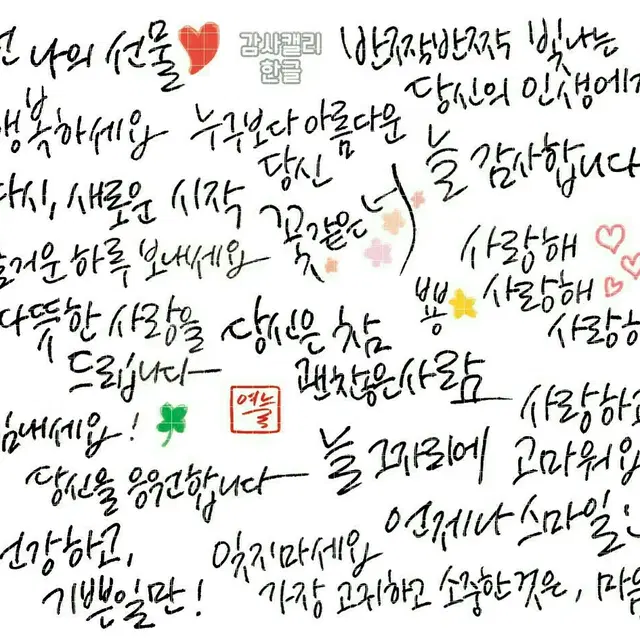 나의 선물
감사캘리
한글
반짝반짝 빛나는
당신의 인생에게
행복하세요
누구보다 아름다운
당신
늘 감사합니다
다시, 새로운 시작
꽃같은 너
하루 보내세요
사랑해
사랑해
사랑해
뿅
따뜻한 사랑을
드립니다
당신은 참
괜찮은 사람
여늘
힘내세요!
당신을 응원합니다
늘 그자리에
사랑하고
고마워요
건강하고,
기쁜일만!
잊지마세요
언제나 스마일:
가장 고귀하고 소중한것은, 마음